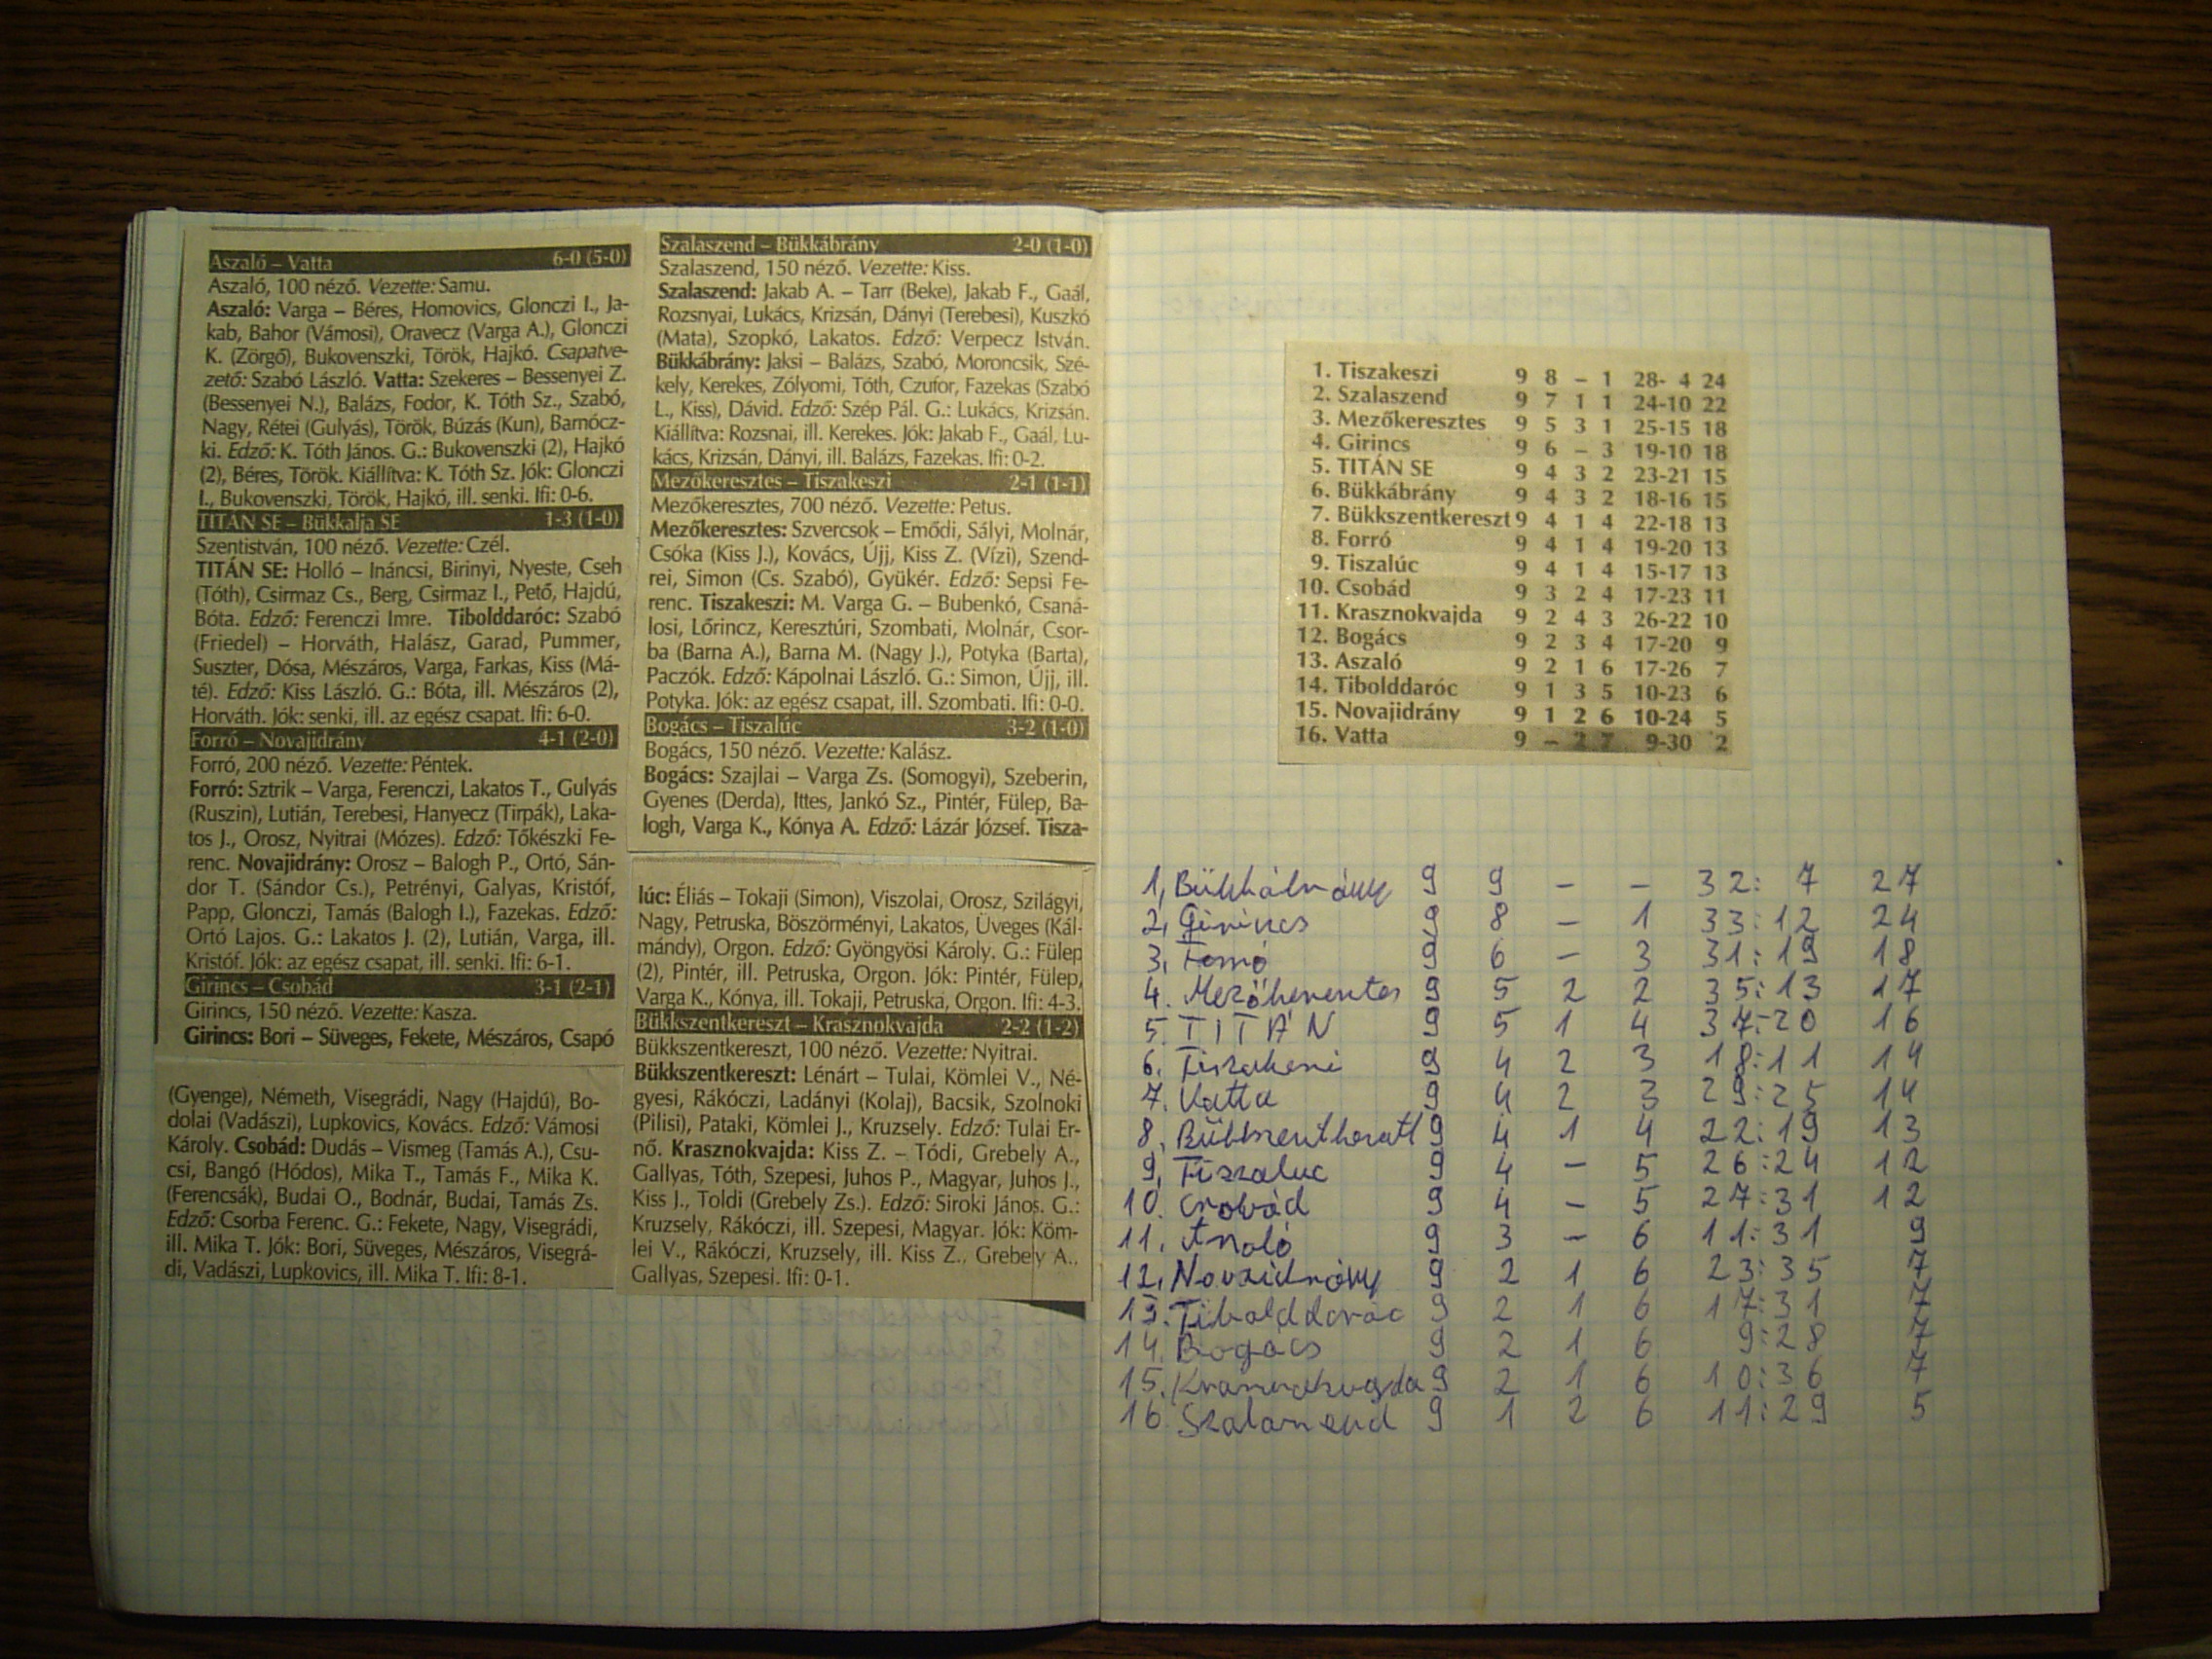 Aszaló – Vatta 6-0 (5-0)
Aszaló, 100 néző. Vezette: Samu.
Aszaló: Varga – Béres, Homovics, Glonczi I., Ja-
kab, Bahor (Vámosi), Oravecz (Varga A.), Glonczi
K. (Zörgő), Bukovenszki, Török, Hajkó. Csapatve-
zető: Szabó László. Vatta: Szekeres – Bessenyei Z.
(Bessenyei N.), Balázs, Fodor, K. Tóth Sz., Szabó,
Nagy, Rétei (Gulyás), Török, Búzás (Kun), Barnócz-
ki. Edző: K. Tóth János. G.: Bukovenszki (2), Hajkó
(2), Béres, Török. Kiállítva: K. Tóth Sz. Jók: Glonczi
I., Bukovenszki, Török, Hajkó, ill. senki. Ifi: 0-6.
TITÁN SE – Bükkalja SE 1-3 (1-0)
Szentistván, 100 néző. Vezette: Czél.
TITÁN SE: Holló – Ináncsi, Birinyi, Nyeste, Cseh
(Tóth), Csirmaz Cs., Berg, Csirmaz I., Pető, Hajdú,
Bóta. Edző: Ferenczi Imre. Tibolddaróc: Szabó
(Friedel) – Horváth, Halász, Garad, Pummer,
Suszter, Dósa, Mészáros, Varga, Farkas, Kiss (Má-
té). Edző: Kiss László. G.: Bóta, ill. Mészáros (2),
Horváth. Jók: senki, ill. az egész csapat. Ifi: 6-0.
Forró – Novajidrány 4-1 (2-0)
Forró, 200 néző. Vezette: Péntek.
Forró: Sztrik – Varga, Ferenczi, Lakatos T., Gulyás
(Ruszin), Lutián, Terebesi, Hanyecz (Tirpák), Laka-
tos J., Orosz, Nyitrai (Mózes). Edző: Tőkészki Fe-
renc. Novajidrány: Orosz – Balogh P., Ortó, Sán-
dor T. (Sándor Cs.), Petrényi, Galyas, Kristóf,
Papp, Glonczi, Tamás (Balogh I.), Fazekas. Edző:
Ortó Lajos. G.: Lakatos J. (2), Lutián, Varga, ill.
Kristóf. Jók: az egész csapat, ill. senki. Ifi: 6-1.
Girincs – Csobád 3-1 (2-1)
Girincs, 150 néző. Vezette: Kasza.
Girincs: Bori – Süveges, Fekete, Mészáros, Csapó
(Gyenge), Németh, Visegrádi, Nagy (Hajdú), Bo-
dolai (Vadászi), Lupkovics, Kovács. Edző: Vámosi
Károly. Csobád: Dudás – Vismeg (Tamás A.), Csu-
csi, Bangó (Hódos), Mika T., Tamás F., Mika K.
(Ferencsák), Budai O., Bodnár, Budai, Tamás Zs.
Edző: Csorba Ferenc. G.: Fekete, Nagy, Visegrádi,
ill. Mika T. Jók: Bori, Süveges, Mészáros, Visegrá-
di, Vadászi, Lupkovics, ill. Mika T. Ifi: 8-1.
Szalaszend – Bükkábrány 2-0 (1-0)
Szalaszend, 150 néző. Vezette: Kiss.
Szalaszend: Jakab A. – Tarr (Beke), Jakab F., Gaál,
Rozsnyai, Lukács, Krizsán, Dányi (Terebesi), Kuszkó
(Mata), Szopkó, Lakatos. Edző: Verpecz István.
Bükkábrány: Jaksi – Balázs, Szabó, Moroncsik, Szé-
kely, Kerekes, Zólyomi, Tóth, Czufor, Fazekas (Szabó
L., Kiss), Dávid. Edző: Szép Pál. G.: Lukács, Krizsán.
Kiállítva: Rozsnai, ill. Kerekes. Jók: Jakab F., Gaál, Lu-
kács, Krizsán, Dányi, ill. Balázs, Fazekas. Ifi: 0-2.
Mezőkeresztes – Tiszakeszi 2-1 (1-1)
Mezőkeresztes, 700 néző. Vezette: Petus.
Mezőkeresztes: Szvercsok – Emődi, Sályi, Molnár,
Csóka (Kiss J.), Kovács, Újj, Kiss Z. (Vízi), Szend-
rei, Simon (Cs. Szabó), Gyükér. Edző: Sepsi Fe-
renc. Tiszakeszi: M. Varga G. – Bubenkó, Csaná-
losi, Lőrincz, Keresztúri, Szombati, Molnár, Csor-
ba (Barna A.), Barna M. (Nagy J.), Potyka (Barta),
Paczók. Edző: Kápolnai László. G.: Simon, Újj, ill.
Potyka. Jók: az egész csapat, ill. Szombati. Ifi: 0-0.
Bogács – Tiszalúc 3-2 (1-0)
Bogács, 150 néző. Vezette: Kalász.
Bogács: Szajlai – Varga Zs. (Somogyi), Szeberin,
Gyenes (Derda), Ittes, Jankó Sz., Pintér, Fülep, Ba-
logh, Varga K., Kónya A. Edző: Lázár József. Tisza-
lúc: Éliás – Tokaji (Simon), Viszolai, Orosz, Szilágyi,
Nagy, Petruska, Böszörményi, Lakatos, Üveges (Kál-
mándy), Orgon. Edző: Gyöngyösi Károly. G.: Fülep
(2), Pintér, ill. Petruska, Orgon. Jók: Pintér, Fülep,
Varga K., Kónya, ill. Tokaji, Petruska, Orgon. Ifi: 4-3.
Bükkszentkereszt – Krasznokvajda 2-2 (1-2)
Bükkszentkereszt, 100 néző. Vezette: Nyitrai.
Bükkszentkereszt: Lénárt – Tulai, Kömlei V., Né-
gyesi, Rákóczi, Ladányi (Kolaj), Bacsik, Szolnoki
(Pilisi), Pataki, Kömlei J., Kruzsely. Edző: Tulai Er-
nő. Krasznokvajda: Kiss Z. – Tódi, Grebely A.,
Gallyas, Tóth, Szepesi, Juhos P., Magyar, Juhos J.,
Kiss J., Toldi (Grebely Zs.). Edző: Siroki János. G.:
Kruzsely, Rákóczi, ill. Szepesi, Magyar. Jók: Köm-
lei V., Rákóczi, Kruzsely, ill. Kiss Z., Grebely A.,
Gallyas, Szepesi. Ifi: 0-1.
1. Tiszakeszi 9 8 – 1 28- 4 24
2. Szalaszend 9 7 1 1 24-10 22
3. Mezőkeresztes 9 5 3 1 25-15 18
4. Girincs 9 6 – 3 19-10 18
5. TITÁN SE 9 4 3 2 23-21 15
6. Bükkábrány 9 4 3 2 18-16 15
7. Bükkszentkereszt 9 4 1 4 22-18 13
8. Forró 9 4 1 4 19-20 13
9. Tiszalúc 9 4 1 4 15-17 13
10. Csobád 9 3 2 4 17-23 11
11. Krasznokvajda 9 2 4 3 26-22 10
12. Bogács 9 2 3 4 17-20 9
13. Aszaló 9 2 1 6 17-26 7
14. Tibolddaróc 9 1 3 5 10-23 6
15. Novajidrány 9 1 2 6 10-24 5
16. Vatta 9 – 2 7 9-30 2
1, Bükkábrány 9 9 – – 32: 7 27
2, Girincs 9 8 – 1 33:12 24
3, Forró 9 6 – 3 31:19 18
4. Mezőkeresztes 9 5 2 2 35:13 17
5. TITÁN 9 5 1 4 37:20 16
6. Tiszakeszi 9 4 2 3 18:11 14
7. Vatta 9 4 2 3 29:25 14
8, 9 4 1 4 22:19 13
9, Tiszaluc 9 4 – 5 26:24 12
10. Csobád 9 4 – 5 27:31 12
11. Aszaló 9 3 – 6 11:31 9
12. 9 2 1 6 23:35 7
13. Tibolddaróc 9 2 1 6 17:31 7
14. Bogács 9 2 1 6 9:28 7
15. Krasznokvajda 9 2 1 6 10:36 7
16. Szalaszend 9 1 2 6 11:29 5